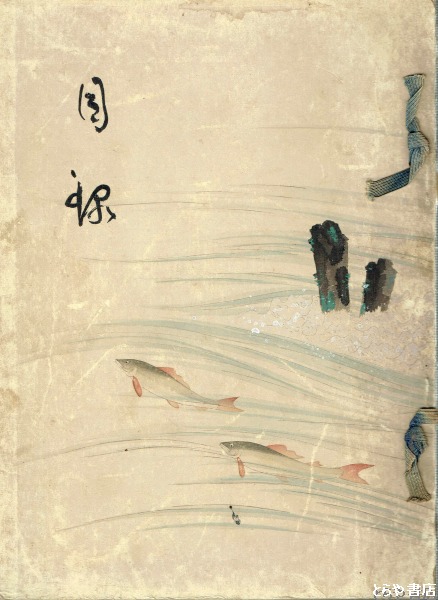 図録
とらや書店